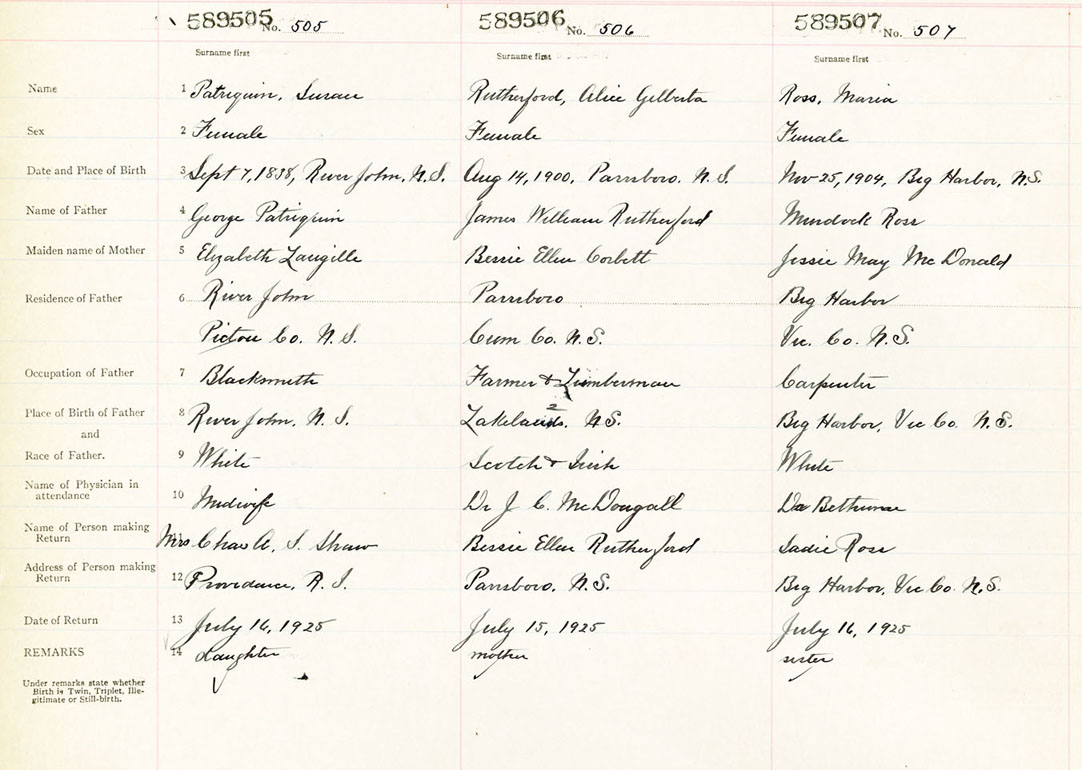 589505 No. 505 589506 No. 506 589507 No. 507
Surname first Surname first Surname first
Name 1 Patriquin, Susan Rutherford, Alice Gilberta Ross, Maria
Sex 2 Female Female Female
Date and Place of Birth 3 Sept 7, 1838, River John, N.S. Aug 14, 1900, Parrsboro, N.S. Nov 25, 1904, Big Harbor, N.S.
Name of Father 4 George Patriquin James William Rutherford Murdock Ross
Maiden name of Mother 5 Elizabeth Langille Bessie Ellen Corbett Jessie May McDonald
Residence of Father 6 River John Parrsboro Big Harbor
Pictou Co. N.S. Cum Co. N.S. Vic. Co. N.S.
Occupation of Father 7 Blacksmith Farmer & Lumberman Carpenter
Place of Birth of Father 8 River John, N.S. Lakelands, N.S. Big Harbor, Vic Co. N.S.
and
Race of Father. 9 White Scotch & Irish White
Name of Physician in
attendance 10 Midwife Dr J. C. McDougall Bethune
Name of Person making
Return 11 Mrs Chas A. S. Shaw Bessie Ellen Rutherford Sadie Ross
Address of Person making
Return 12 Providence, R.I. Parrsboro, N.S. Big Harbor, Vic Co. N.S.
Date of Return 13 July 16, 1925 July 15, 1925 July 16, 1925
REMARKS 14 Daughter mother sister
Under remarks state whether
Birth is Twin, Triplet, Ille-
gitimate or Still-birth.